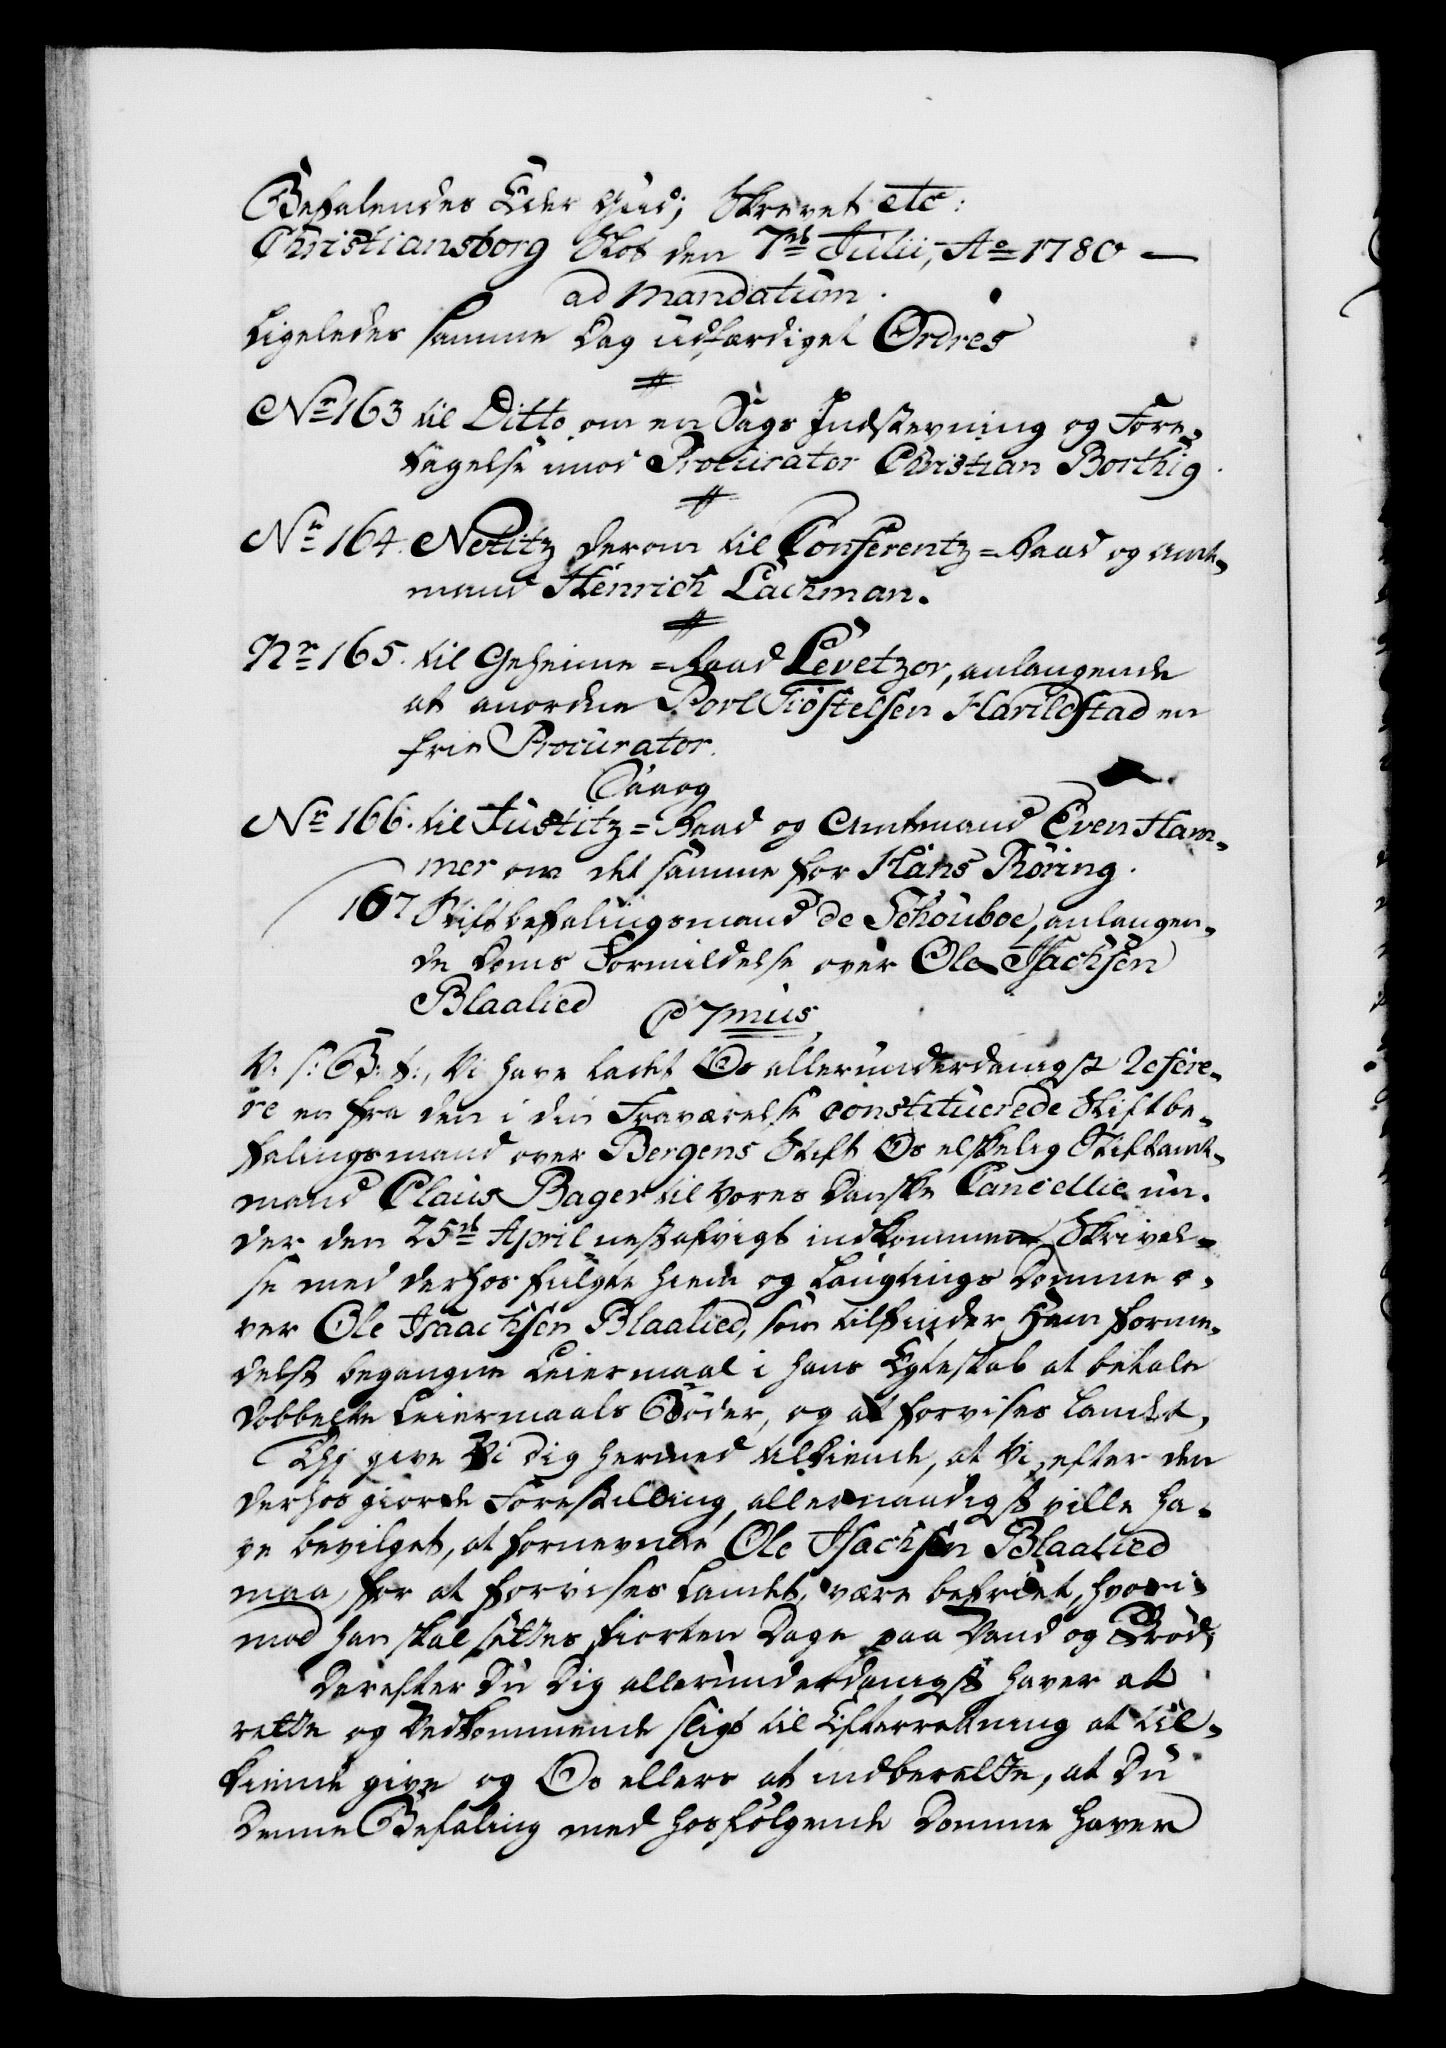 Befalendes Eder Gud; Skrevet etc:
Christiansborg Slot den 7de Julii, Ao 1780 —
ad mandatum.
Ligeledes samme Dag udfærdiget Ordres
No 163 til Ditto om en Sags Indstevning og Fore-
tagelse imod Procurator Christian Borthig.
No 164. Notitz derom til Conferentz=Raad og Amt-
mand Henrich Lachman.
Nr 165. til Geheime=Raad Levetzov, anlangende
at anordne Poel Tiøstelsen Harildstad en
frie Procurator.
Saaog
Nr 166. til Justitz=Raad og Amtmand Even Ham-
mer om det samme for Hans Röring.
167 Stiftbefalingsmand de Schouboe, anlangen-
de Doms Formildelse over Ole Isachsen
Blaalied
V: s: G: t:, Vi have ladet Os allerunderdanigst refere-
re en fra den i din Fraværelse constituerede Stiftbe-
falingsmand over Bergens Stift Os elskelig Stiftamt-
mand Claus Bager til Vores Danske Cancellie un-
der den 25de April nestafvigt indkommen Skrivel-
se med derhos fulgte Hiem og Laugtings Domme o-
ver Ole Isaachsen Blaalied, som tilfinder Ham forme-
delst begangne Leiermaal i hans Egteskab at betale
dobbelte Leiermaals Bøder, og at forvises Landet,
Thj give Vi dig hermed tilkiende, at Vi, efter den
derhos giorde Forestilling, allernaadigst ville ha-
ve bevilget, at fornevnte Ole Isachsen Blaalied
maa for at forvises Landet, være befriet, hvori-
mod han skal sættes fiorten Dage paa Vand og Brød;
Derefter Du Dig allerunderdanigst haver at
rette og Vedkommende sligt til Efterretning at til-
kiende give og Os ellers at indberette, at Du
Denne Befaling med hosfølgende Domme haver